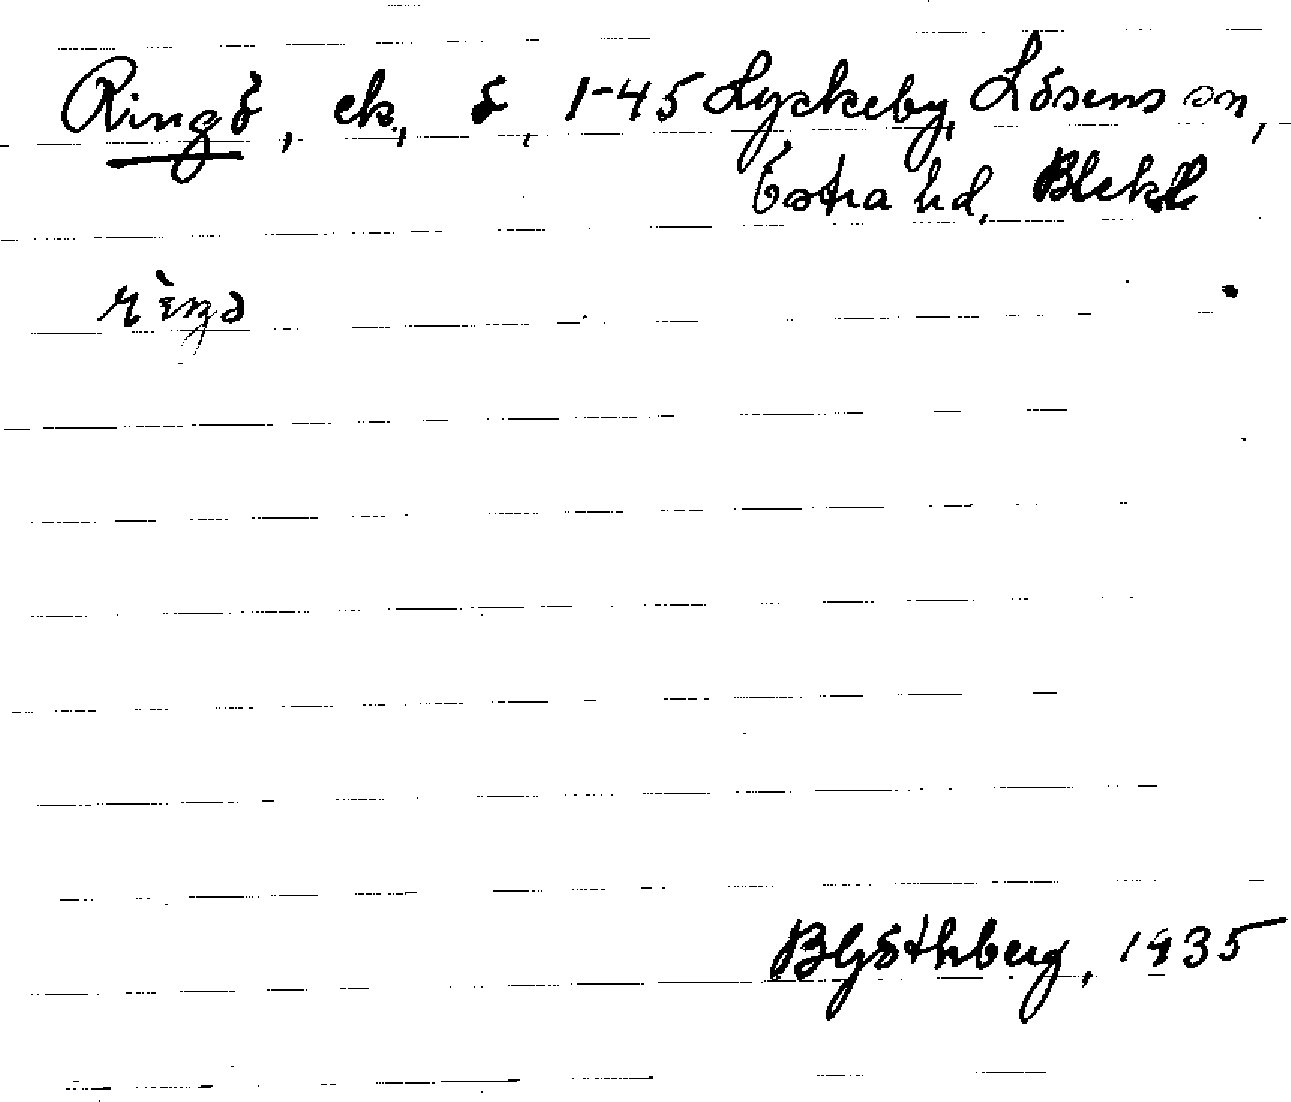 Ringö, ek, ö, 1-45 Lyckeby, Lösens sn,
Östra hd, Blek
BGöthberg, 1935